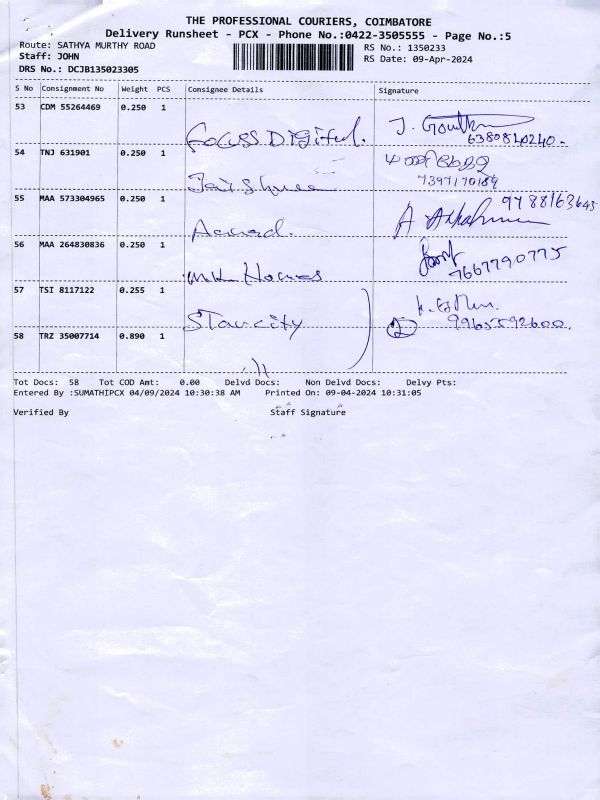 THE PROFESSIONAL COURIERS, COIMBATORE
Delivery Runsheet - PCX - Phone No.:0422-3505555 - Page No.:5
Route: SATHYA MURTHY ROAD RS No.: 1350233
Staff: JOHN RS Date: 09-Apr-2024
DRS No.: DCJB135023305
S No Consignment No Weight PCS Consignee Details Signature
53 CDM 55264469 0.250 1
Focuss Digital. J. Gouth
6380840240.
54 TNJ 631901 0.250 1
Jai Shree 7397170189
55 MAA 573304965 0.250 1 9788163645
56 MAA 264830836 0.250 1
MK Homes 7667790775
57 TSI 8117122 0.255 1
Starcity 2 9965592600.
58 TRZ 35007714 0.890 1
Tot Docs: 58 Tot COD Amt: 0.00 Delvd Docs: Non Delvd Docs: Delvy Pts:
Entered By :SUMATHIPCX 04/09/2024 10:30:38 AM Printed On: 09-04-2024 10:31:05
Verified By Staff Signature